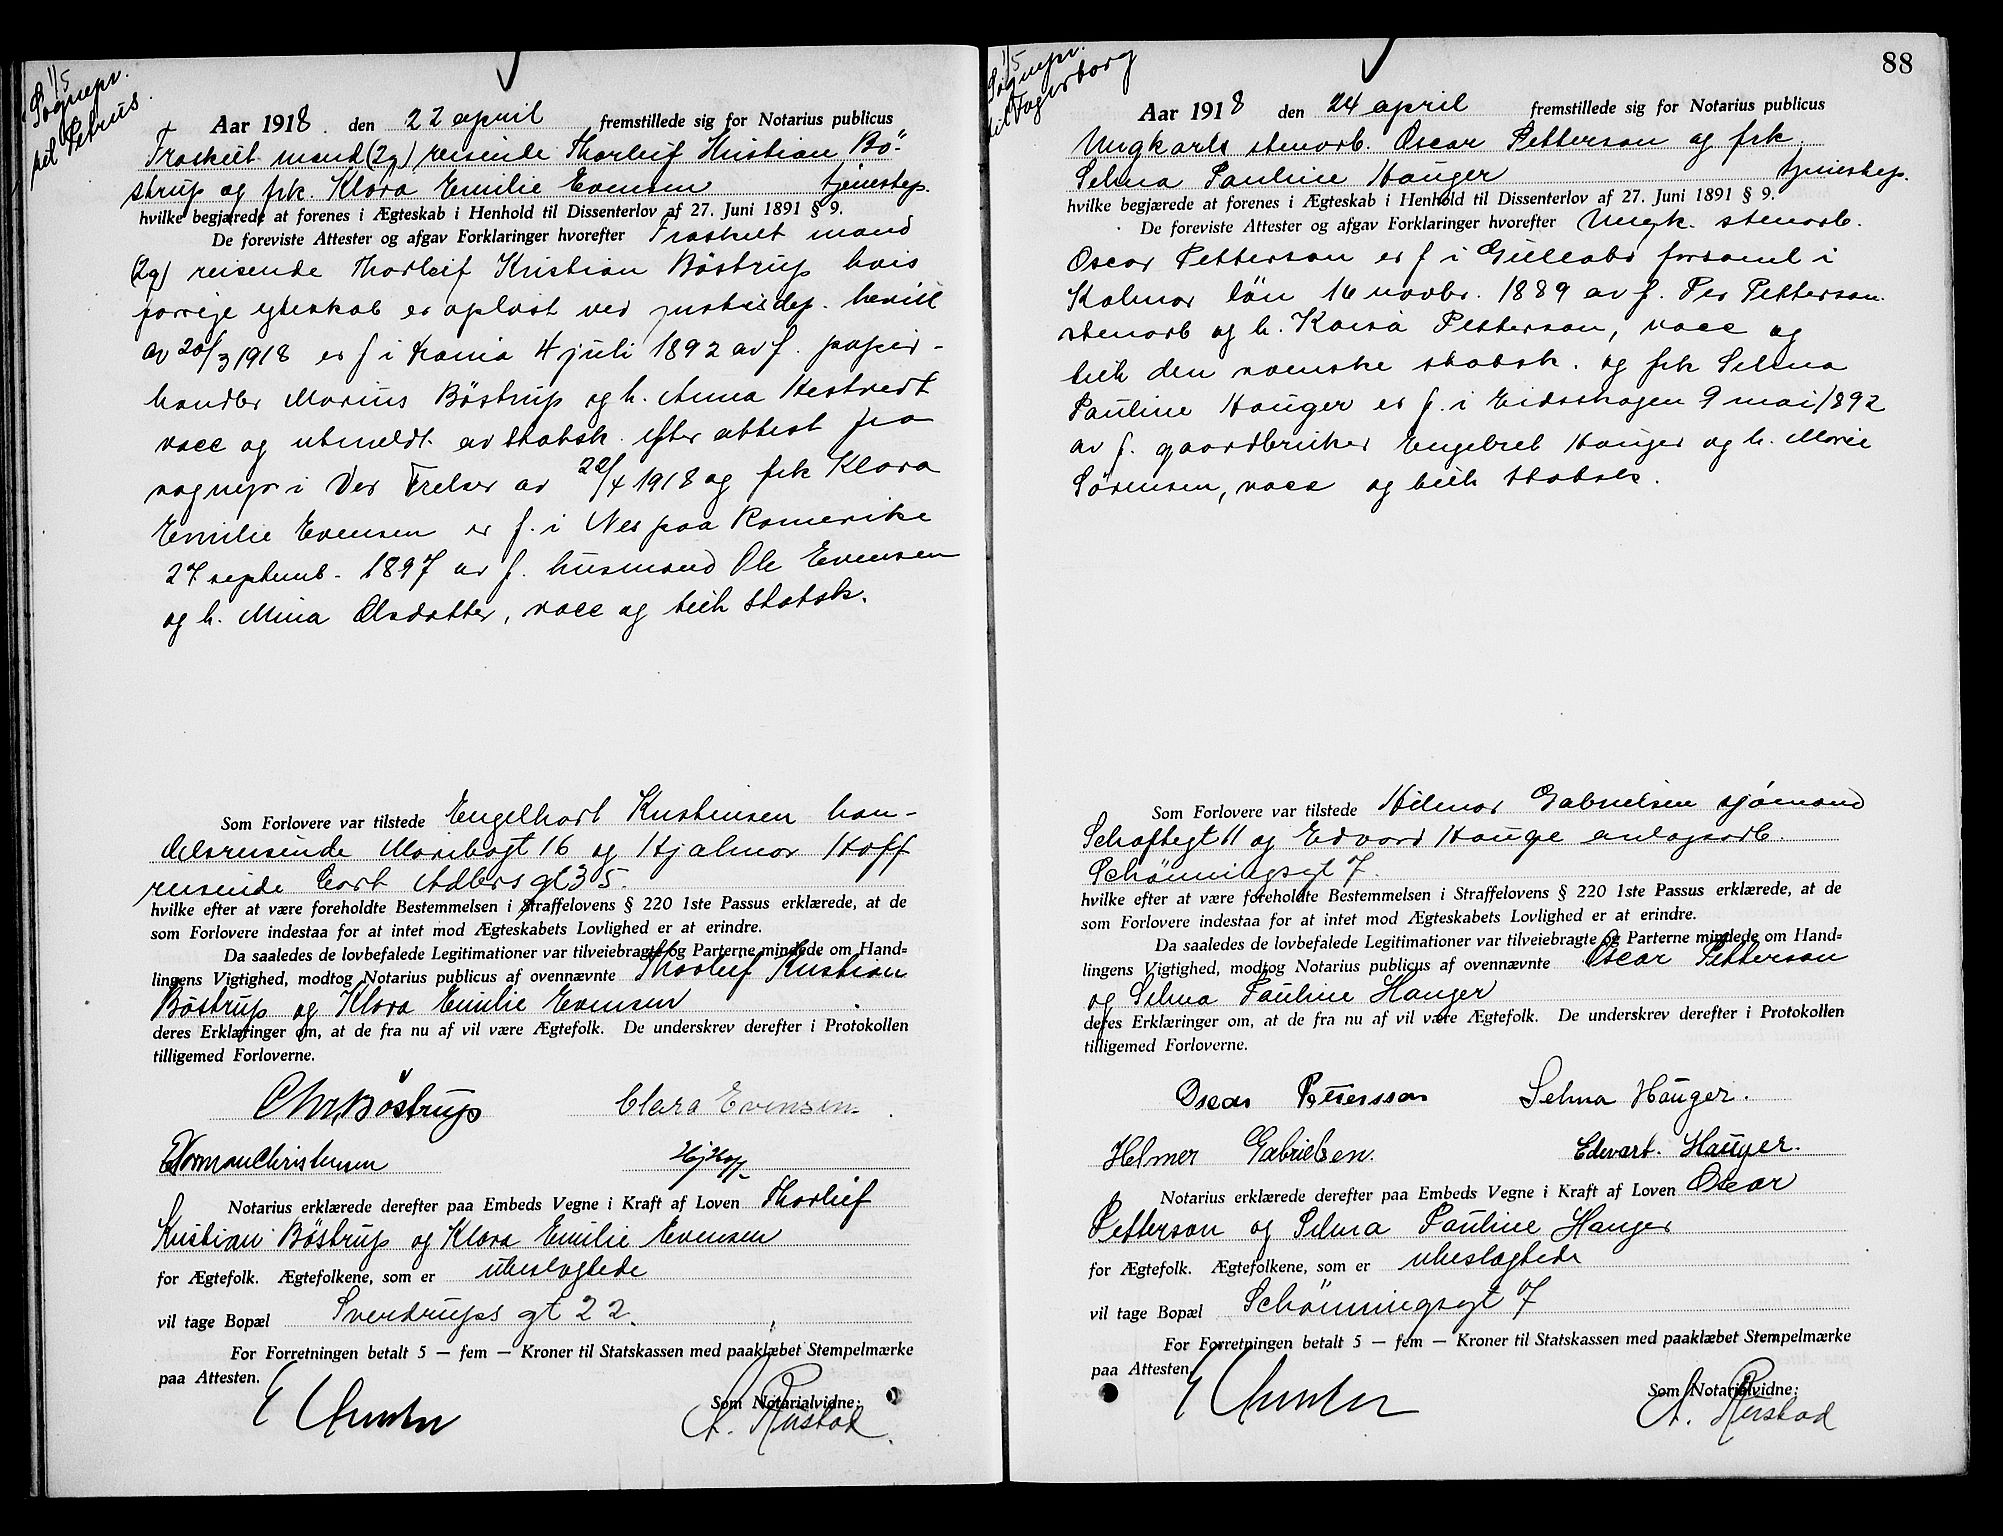 1/5
Sognepr.
til Petrus.
Aar 1918. den 22 april fremstillede sig for Notarius publicus
Fraskilt mand (2g) reisende Thorleif Kristian Bö-
strup og frk. Klara Emilie Evensen tjenestep.
hvilke begjærede at forenes i Ægteskab i Henhold til Dissenterlov af 27. Juni 1891 § 9.
De foreviste Attester og afgav Forklaringer hvorefter Fraskilt mand
(2g) reisende Thorleif Kristian Böstrup hvis
forrige egteskab er oplöst ved justisdep. bevill
av 20/3 1918 er f i Krania 4 juli 1892 av f. papir-
handler Marius Böstrup og h. Anna
vacc og utmeldt av statsk. efter attest fra
sognepr i Vor Frelser av 22/4 1918 og frk Klara
Emilie Evensen er f. i Nes paa Romerike
27 septemb. 1897 av f. husmand Ole Evensen
og h. Mina Olsdatter, vacc og tilh statsk.
Som Forlovere var tilstede Engelhart Kristensen han-
delsreisende Maribogt 16 og Hjalmar Hoff
reisende Cort Adlers gt 35.
hvilke efter at være foreholdte Bestemmelsen i Straffelovens § 220 1ste Passus erklærede, at de
som Forlovere indestaa for at intet mod Ægteskabets Lovlighed er at erindre.
Da saaledes de lovbefalede Legitimationer var tilveiebragte og Parterne mindede om Hand-
lingens Vigtighed, modtog Notarius publicus af ovennævnte Thorleif Kristian
Böstrup og Klara Emilie Evensen
deres Erklæringer om, at de fra nu af vil være Ægtefolk. De underskrev derefter i Protokollen
tilligemed Forloverne.
Chr. Böstrup Clara Evensen.
Christensen Hj Hoff
Notarius erklærede derefter paa Embeds Vegne i Kraft af Loven Thorleif
Kristian Böstrup og Klara Emilie Evensen
for Ægtefolk. Ægtefolkene, som er ubeslegtede
vil tage Bopæl Sverdrups gt 22.
For Forretningen betalt 5 — fem — Kroner til Statskassen med paaklæbet Stempelmærke
paa Attesten.
Som Notarialvidne:
A. Rustad.
88
1/5
Sognepr.
til Fagerborg
Aar 1918 den 24 april fremstillede sig for Notarius publicus
Ungkarls stenarb. Oscar Petterson og frk
Selma Pauline Hauger tjenestep.
hvilke begjærede at forenes i Ægteskab i Henhold til Dissenterlov af 27. Juni 1891 § 9.
De foreviste Attester og afgav Forklaringer hvorefter Ungk. stenarb.
Oscar Petterson er f i Gullabo forsaml i
Kalmar län 16 novbr. 1889 av f. Per Petterson
stenarb og h. Kaisa Petterson, vacc og
tilh den svenske statsk. og frk Selma
Pauline Hauger er f. i Eidsskogen 9 mai 1892
av f. gaardbruker Engebret Hauger og h. Marie
Sörensen, vacc og tilh statsk.
Som Forlovere var tilstede Hilmar Gabrielsen sjömand
Schaftegt 11 og Edvard Hauge anlagsarb.
Schönningsgt 7.
hvilke efter at være foreholdte Bestemmelsen i Straffelovens § 220 1ste Passus erklærede, at de
som Forlovere indestaa for at intet mod Ægteskabets Lovlighed er at erindre.
Da saaledes de lovbefalede Legitimationer var tilveiebragte og Parterne mindede om Hand-
lingens Vigtighed, modtog Notarius publicus af ovennævnte Oscar Petterson
og Selma Pauline Hauger
deres Erklæringer om, at de fra nu af vil være Ægtefolk. De underskrev derefter i Protokollen
tilligemed Forloverne.
Oscar Petersson Selma Hauger.
Helmer Gabrielsen. Edvart. Hauger.
Notarius erklærede derefter paa Embeds Vegne i Kraft af Loven Oscar
Petterson og Selma Pauline Hauger
for Ægtefolk. Ægtefolkene, som er ubeslegtede
vil tage Bopæl Schönningsgt 7
For Forretningen betalt 5 — fem — Kroner til Statskassen med paaklæbet Stempelmærke
paa Attesten.
Som Notarialvidne:
A. Rustad